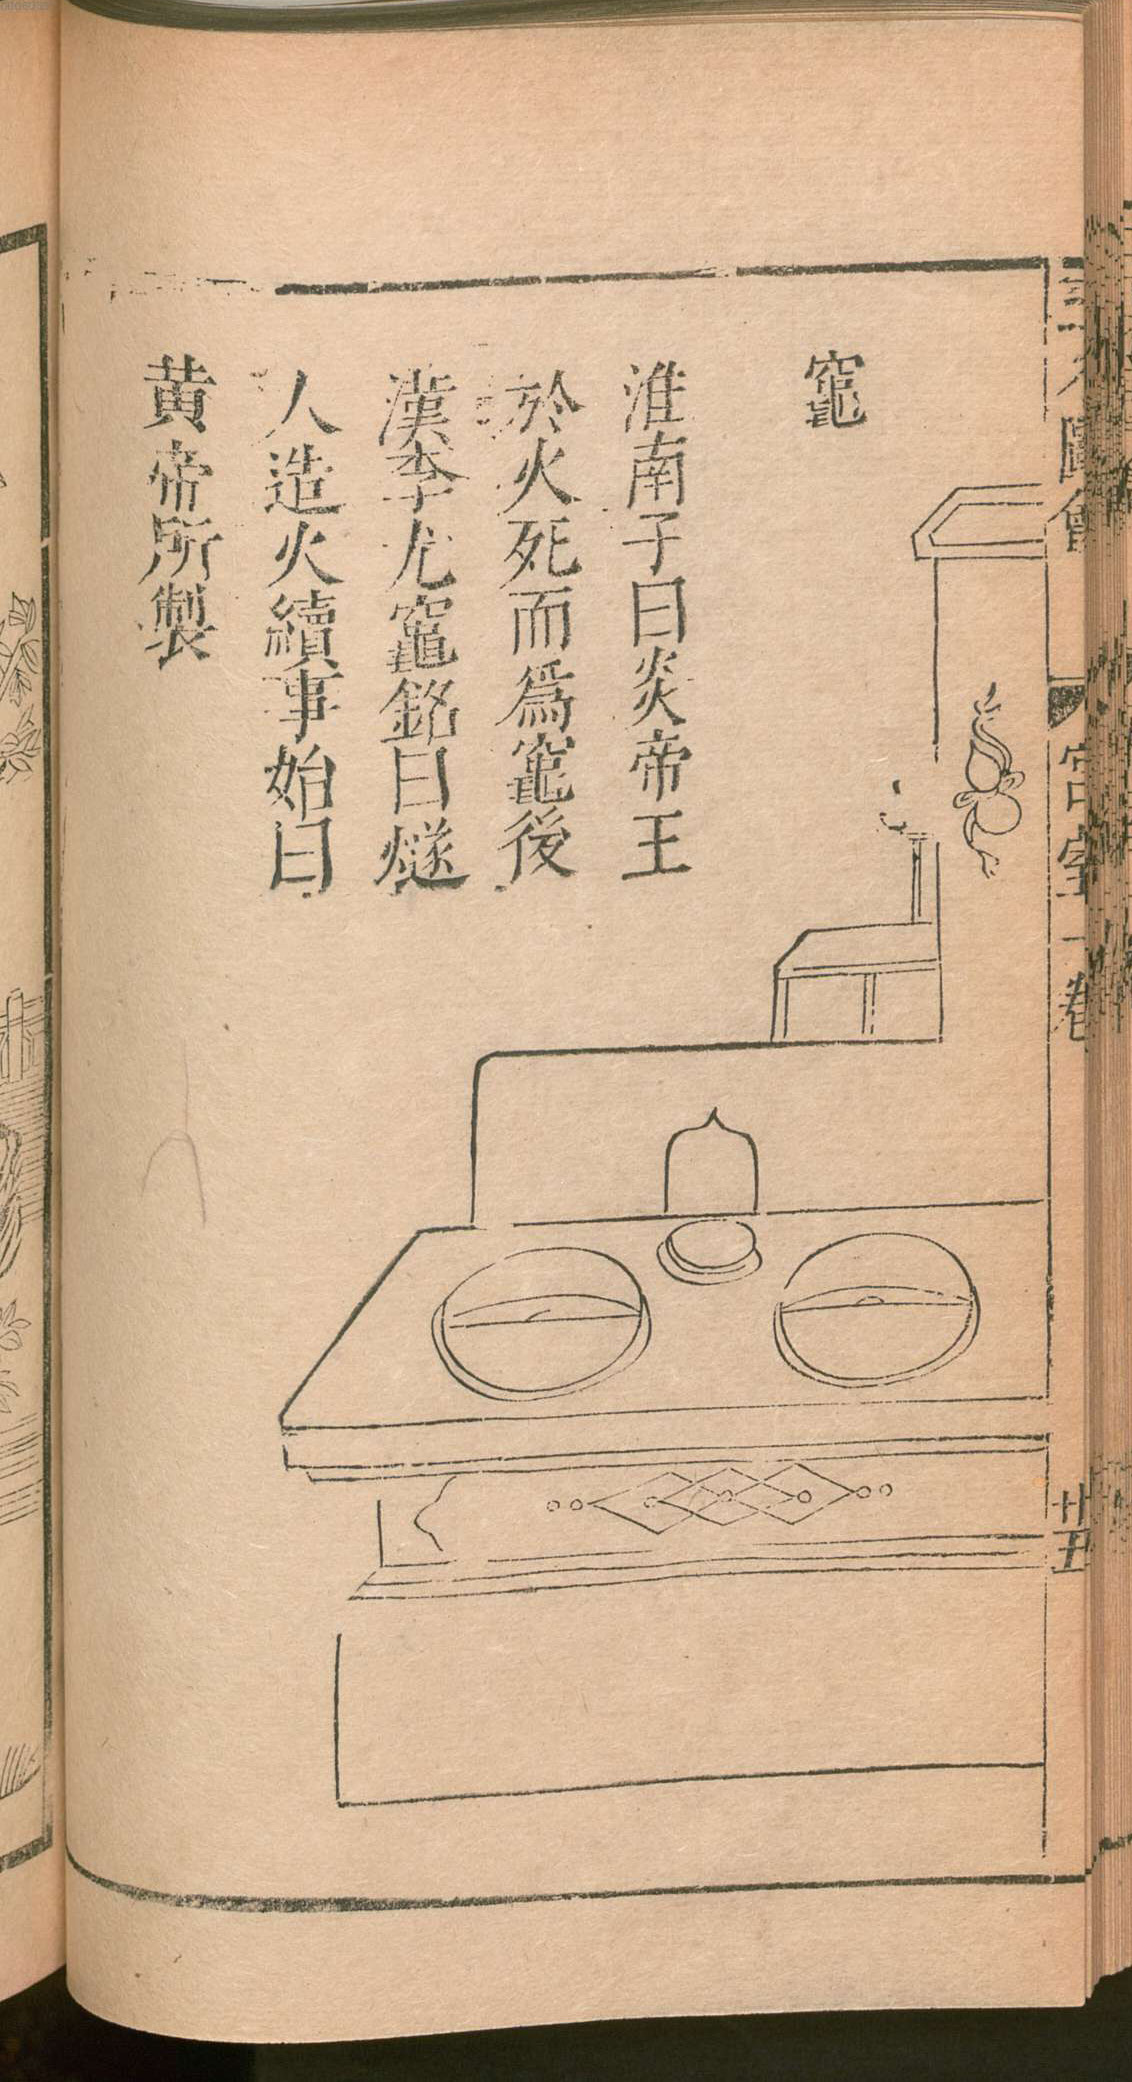 三才圖會
宮室一卷
廿五
竈
淮南子曰炎帝王
於火死而爲竈後
漢李尤竈銘曰燧
人造火續事始曰
黄帝所製